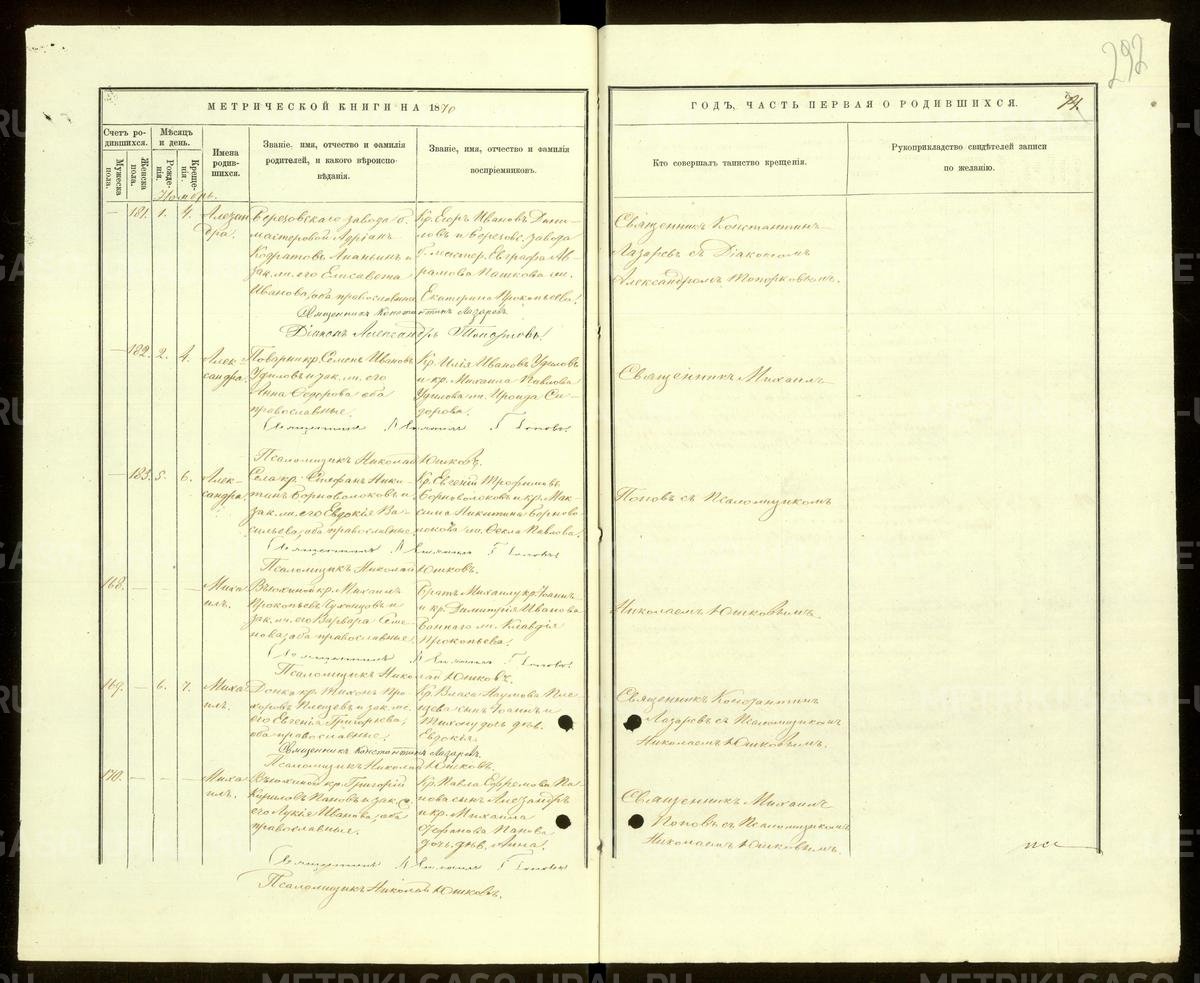 292
МЕТРИЧЕСКОЙ КНИГИ НА 1870
ГОДЪ, ЧАСТЬ ПЕРВАЯ О РОДИВШИХСЯ.
Счетъ ро-
дившихся.
Мужеска пола.
Женска пола.
Мѣсяцъ
и день.
Рожде-
нія.
Креще-
нія.
Имена
родив-
шихся.
Званіе, имя, отчество и фамилія
родителей, и какого вѣроиспо-
вѣданія.
Званіе, имя, отчество и фамилія
воспріемниковъ.
Кто совершалъ таинство крещенія.
Рукоприкладство свидѣтелей записи
по желанію.
Ноябрь.
181. 1. 4.
Березовскаго завода б.
мастеровой Адріанъ
зак. ж. его Елисавета
Иванова, оба православные
Кр. Егоръ Ивановъ Дани-
ловъ и Березовс. завода
б. мастер. Евграфа Ав-
рамова Пашкова ж.
Екатерина Прокопьева.
Священникъ Константинъ Лазаревъ
Діаконъ Александръ Топорковъ.
Священникъ Константинъ
Лазаревъ съ Діакономъ
Александромъ Топорковымъ.
182. 2. 4.
Алек-
сандра.
кр. Семенъ Ивановъ
Удиловъ и зак. ж. его
Анна Ѳедорова оба
православные.
Кр. Илія Ивановъ Удиловъ
и кр. Михаила Павлова
Удилова ж. Ироида Си-
дорова.
Священникъ Михаилъ Поповъ.
Псаломщикъ Николай Юшковъ.
Священникъ Михаилъ
183. 5. 6.
Алек-
сандра.
Села кр. Стефанъ Ники-
тинъ Борноволоковъ и
зак. ж. его Евдокія Ва-
сильева, оба православные.
Кр. Евгеній Трофимовъ
Борноволоковъ и кр. Мак-
сима Никитина Борново-
локова ж. Ѳекла Павлова.
Священникъ Михаилъ Поповъ
Псаломщикъ Николай Юшковъ.
Поповъ съ Псаломщикомъ
168.
Миха-
илъ.
Вьюхиной кр. Михаилъ
Прокопьевъ и
зак. ж. его Варвара Семе-
нова, оба православные.
Братъ Михаилу кр. Іоаннъ
и кр. Димитрія Иванова
ж. Клавдія
Прокопьева.
Священникъ Михаилъ Поповъ.
Псаломщикъ Николай Юшковъ.
Николаемъ Юшковымъ.
169. 6. 7.
Миха-
илъ.
кр. Тихонъ Про-
хоровъ Плещевъ и зак. ж.
его Евгенія Григорьева,
оба православные.
Кр. Власа Наумова Пле-
щева сынъ Іоаннъ и
дочь дѣв.
Евдокія.
Священникъ Константинъ Лазаревъ.
Псаломщикъ Николай Юшковъ.
Священникъ Константинъ
Лазаревъ съ Псаломщикомъ
Николаемъ Юшковымъ.
170.
Миха-
илъ.
Вьюхиной кр. Григорій
Кириловъ Пановъ и зак. ж.
его Лукія Иванова, оба
православные.
Кр. Павла Ефремова Па-
нова сынъ Александръ
и кр. Михаила
Стефанова Панова
дочь дѣв. Анна.
Священникъ Михаилъ Поповъ
Псаломщикъ Николай Юшковъ.
Священникъ Михаилъ
Поповъ съ Псаломщикомъ
Николаемъ Юшковымъ.
METRIKI-GASO-URAL.RU